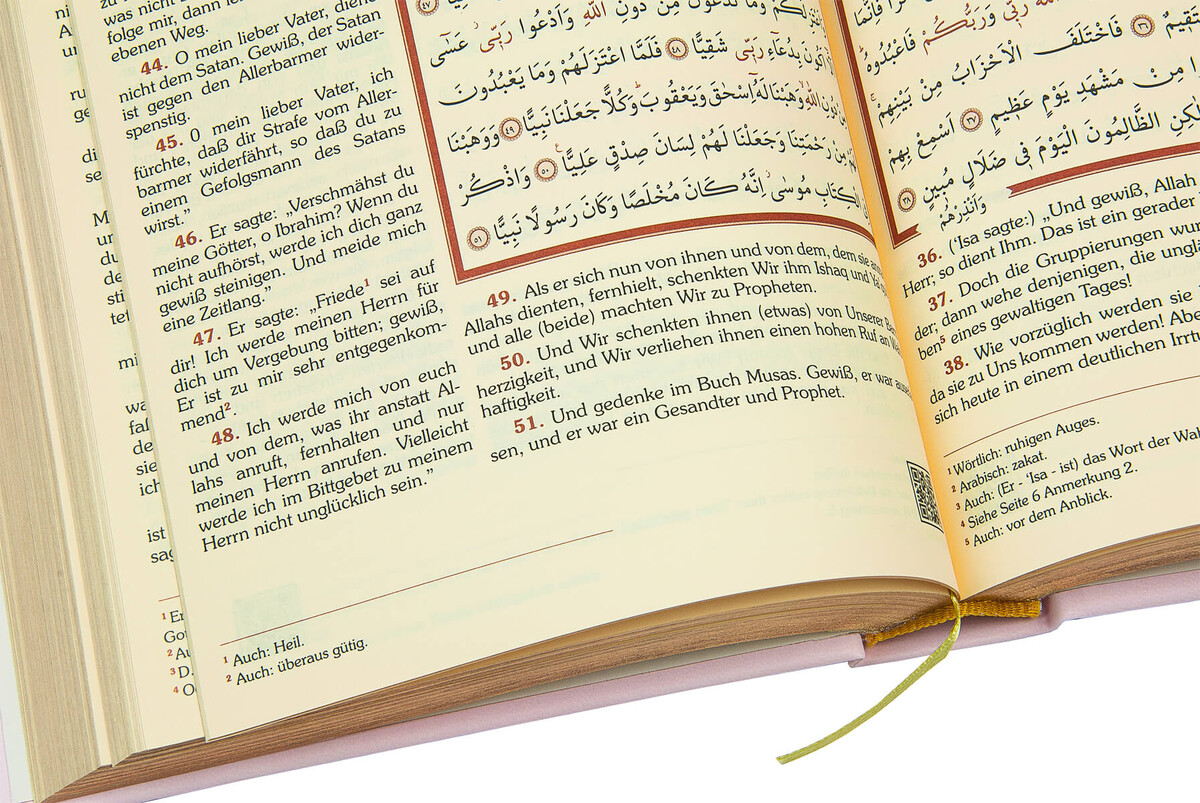 was nicht
folge mir, dann
ebenen Weg.
44. O mein lieber Vater, diene
nicht dem Satan. Gewiß, der Satan
ist gegen den Allerbarmer wider-
spenstig.
45. O mein lieber Vater, ich
fürchte, daß dir Strafe vom Aller-
barmer widerfährt, so daß du zu
einem Gefolgsmann des Satans
wirst.”
46. Er sagte: „Verschmähst du
meine Götter, o Ibrahim? Wenn du
nicht aufhörst, werde ich dich ganz
gewiß steinigen. Und meide mich
eine Zeitlang.”
47. Er sagte: „Friede¹ sei auf
dir! Ich werde meinen Herrn für
dich um Vergebung bitten; gewiß,
Er ist zu mir sehr entgegenkom-
mend².
48. Ich werde mich von euch
und von dem, was ihr anstatt Al-
lahs anruft, fernhalten und nur
meinen Herrn anrufen. Vielleicht
werde ich im Bittgebet zu meinem
Herrn nicht unglücklich sein.”
¹ Auch: Heil.
² Auch: überaus gütig.
وَمَا تَدْعُونَ مِنْ دُونِ اللّٰهِ وَاَدْعُوا رَبّ۪ىۘ عَسٰٓى
بِدُعَٓاءِ رَبّ۪ى شَقِيًّا ٤٨ فَلَمَّا اعْتَزَلَهُمْ وَمَا يَعْبُدُونَ
اللّٰهِۙ وَهَبْنَا لَهُٓ اِسْحٰقَ وَيَعْقُوبَۜ وَكُلًّا جَعَلْنَا نَبِيًّا ٤٩ وَوَهَبْنَا
مِنْ رَحْمَتِنَا وَجَعَلْنَا لَهُمْ لِسَانَ صِدْقٍ عَلِيًّا ٥٠ وَاذْكُرْ
الْكِتَابِ مُوسٰىۘ اِنَّهُ كَانَ مُخْلَصًا وَكَانَ رَسُولًا نَبِيًّا ٥١
49. Als er sich nun von ihnen und von dem, dem sie
Allahs dienten, fernhielt, schenkten Wir ihm Ishaq und
und alle (beide) machten Wir zu Propheten.
50. Und Wir schenkten ihnen (etwas) von Unserer
herzigkeit, und Wir verliehen ihnen einen hohen Ruf an
haftigkeit.
51. Und gedenke im Buch Musas. Gewiß, er war
sen, und er war ein Gesandter und Prophet.
رَبّ۪ى وَرَبُّكُمْ فَاعْبُدُوهُۜ
٣٦ فَاخْتَلَفَ الْاَحْزَابُ مِنْ بَيْنِهِمْۚ
مِنْ مَشْهَدِ يَوْمٍ عَظ۪يمٍ ٣٧ اَسْمِعْ بِهِمْ
الظَّالِمُونَ الْيَوْمَ ف۪ى ضَلَالٍ مُب۪ينٍ ٣٨
وَاَنْذِرْهُمْ
36. (‘Isa sagte:) „Und gewiß, Allah
Herr; so dient Ihm. Das ist ein gerader
37. Doch die Gruppierungen
der; dann wehe denjenigen, die
ben⁵ eines gewaltigen Tages!
38. Wie vorzüglich werden sie
da sie zu Uns kommen werden!
sich heute in einem deutlichen
¹ Wörtlich: ruhigen Auges.
² Arabisch: zakat.
³ Auch: (Er - ‘Isa - ist) das Wort der
⁴ Siehe Seite 6 Anmerkung 2.
⁵ Auch: vor dem Anblick.